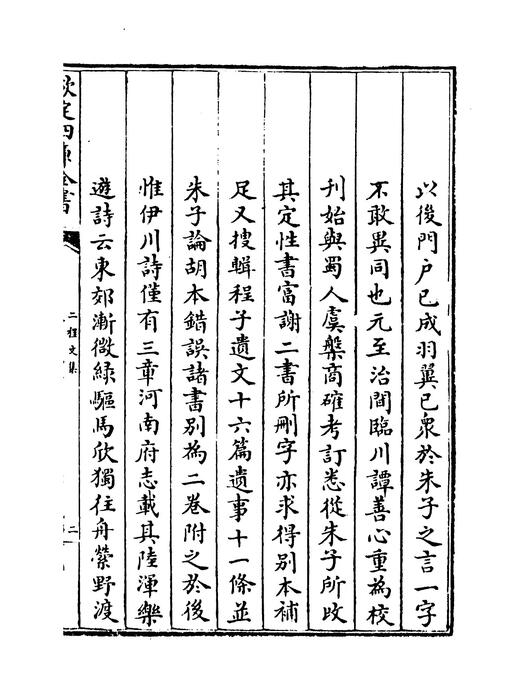 以後門户已成羽翼已衆於朱子之言一字
不敢異同也元至治間臨川譚善心重為校
刊始與蜀人虞槃商確考訂悉從朱子所改
其定性書富謝二書所刪字亦求得别本補
足又搜輯程子遺文十六篇遺事十一條並
朱子論胡本錯誤諸書别為二卷附之於後
惟伊川詩僅有三章河南府志載其陸渾樂
遊詩云東郊漸微緑驅馬欣獨往舟縈野渡
欽定四庫全書
二程文集
二